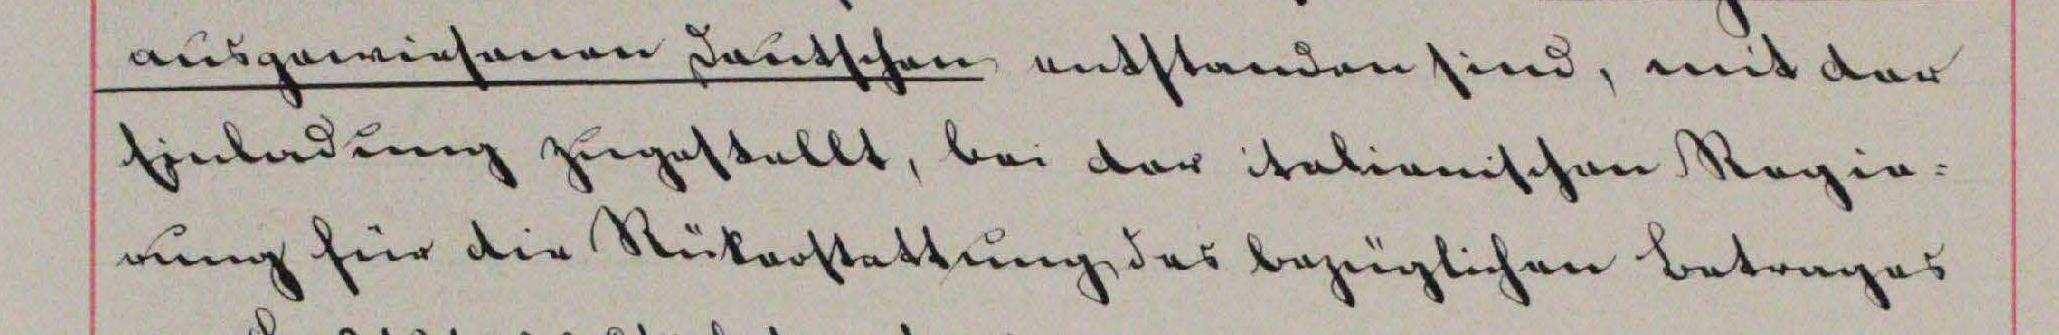 ausgewiesenen Deutschen entstanden sind, mit der
Einladung zugestellt, bei der italienischen Regie-
rung für die Rükerstattung des bezüglichen Betrages